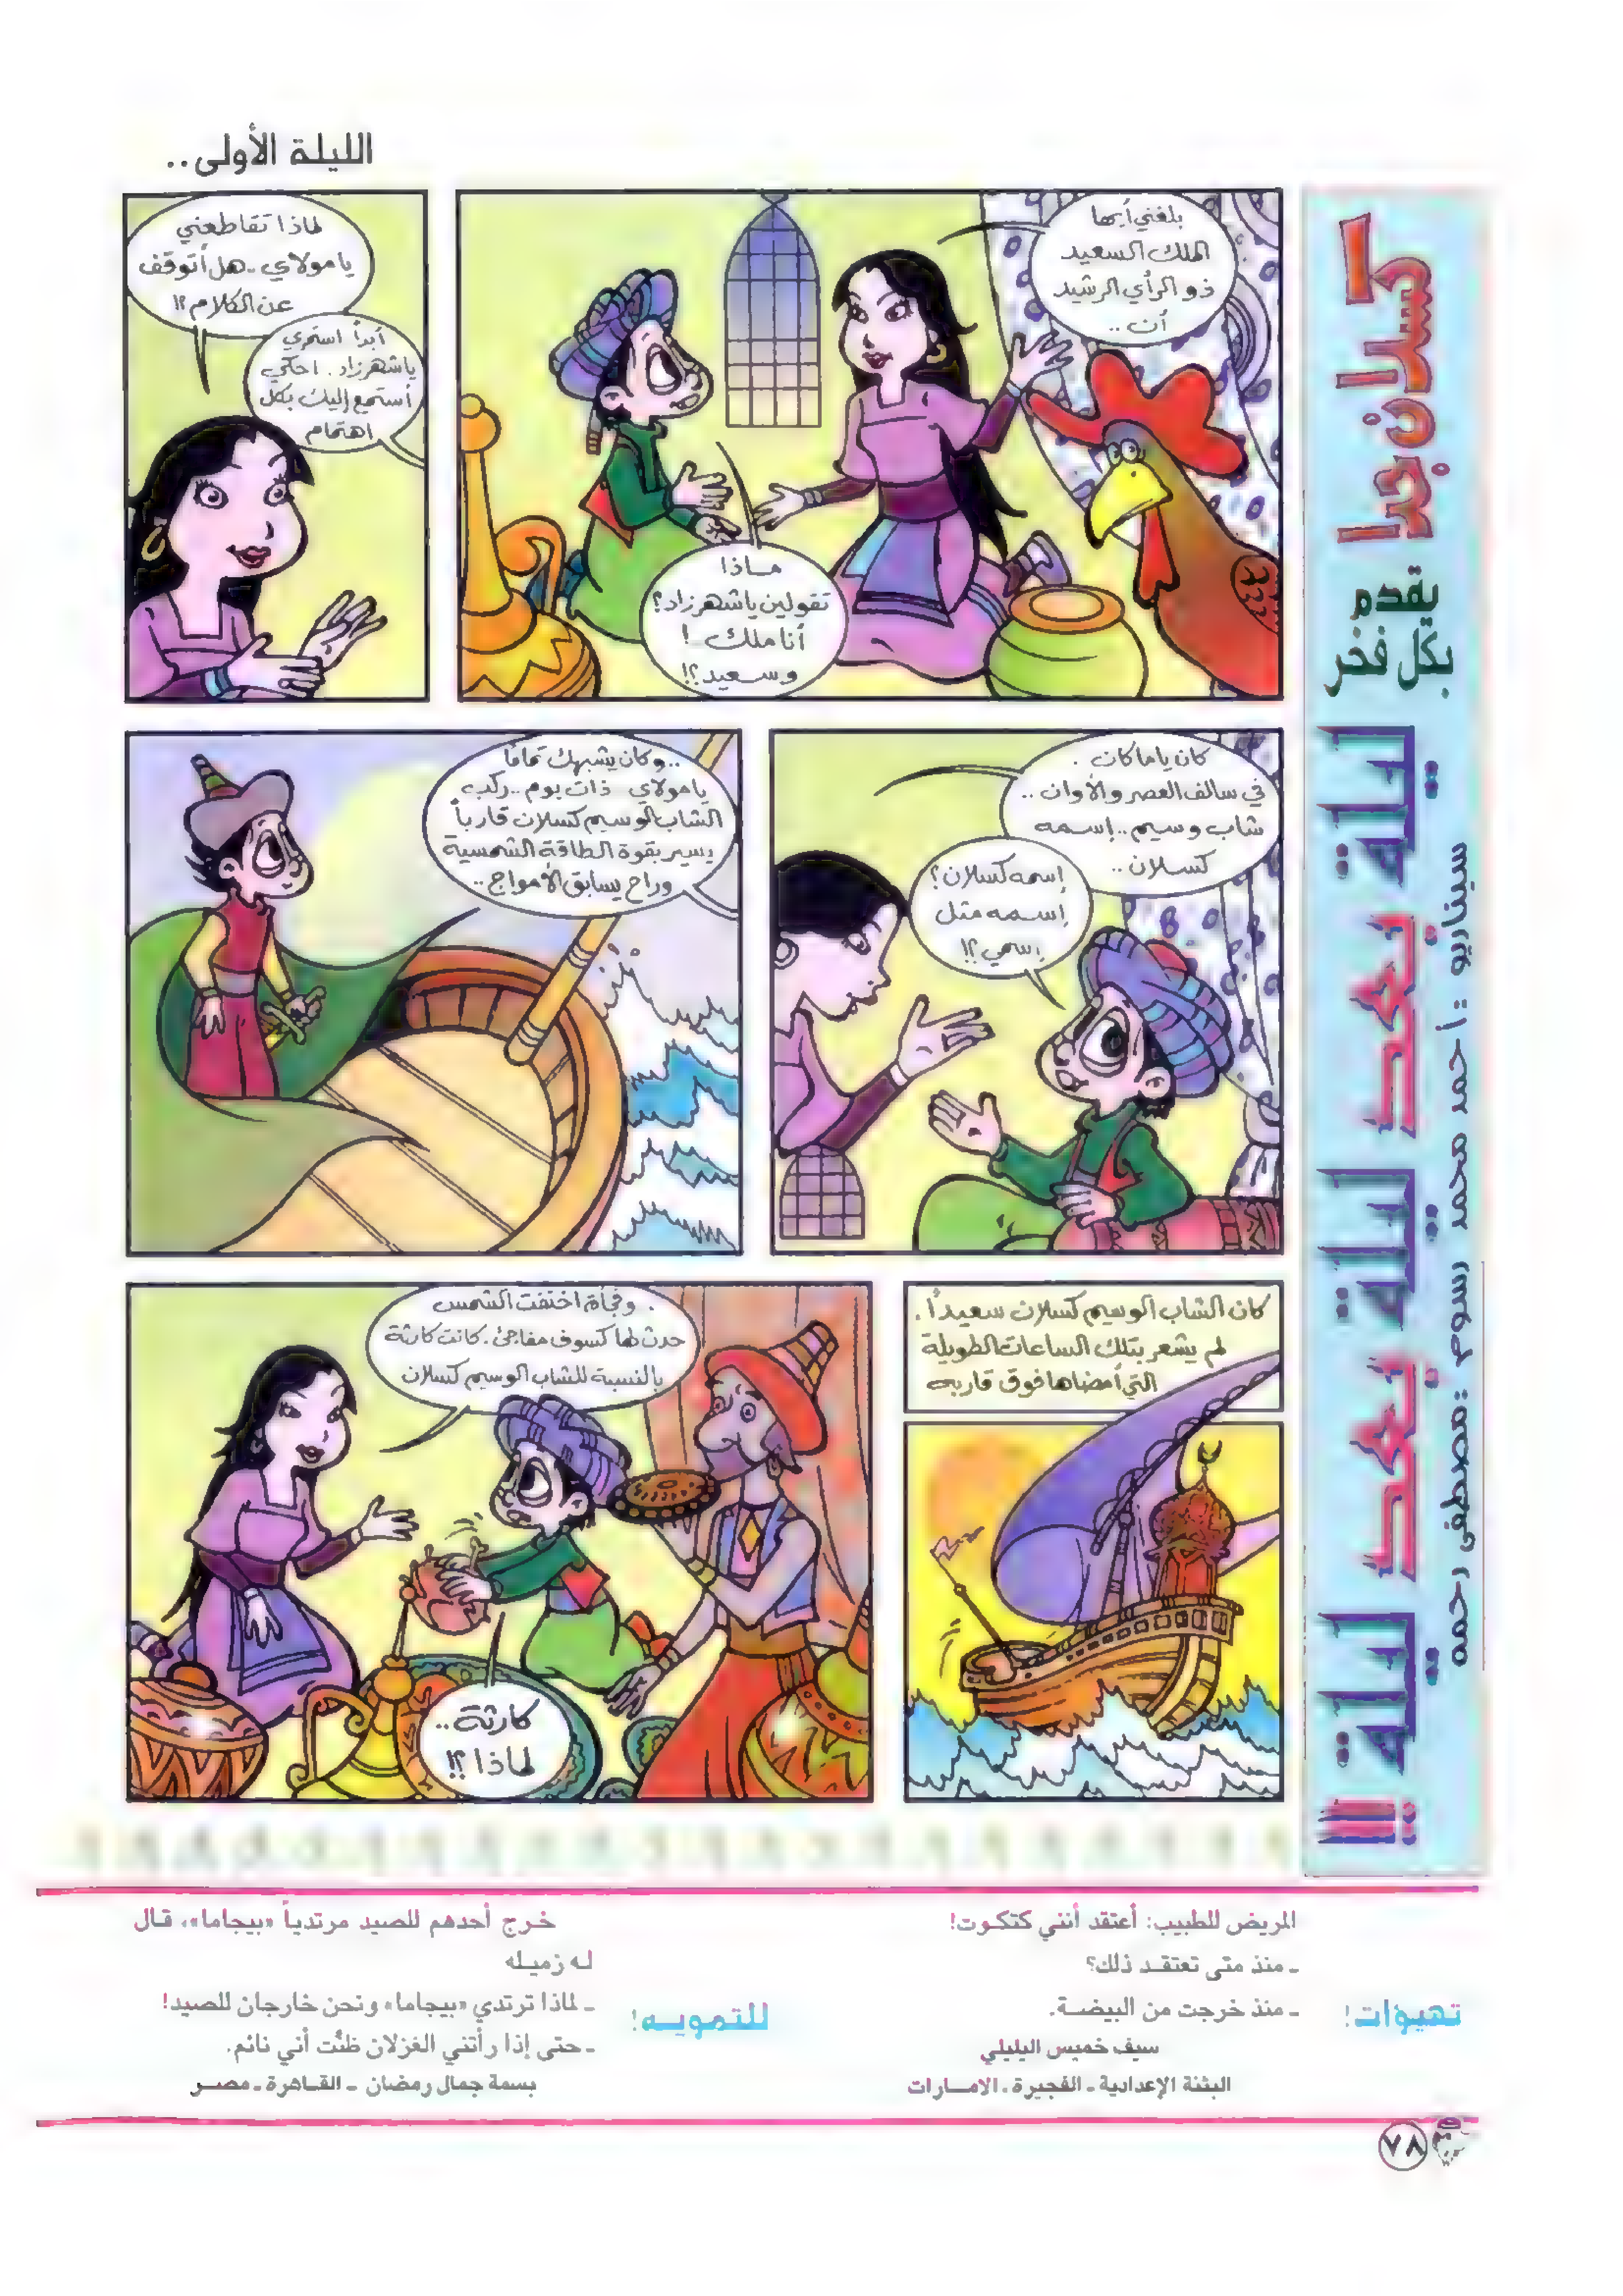 الليلة الأولى..
كسلان جدا
يقدم
بكل فخر
ليلة بعد ليلة بعد ليلة !!
سيناريو : أحمد محمد رسوم : مصطفى رحمه
بلغني أيها
الملك السعيد
ذو الرأي الرشيد
أن ..
ماذا
تقولين يا شهرزاد؟
أنا ملك !
وسعيد؟!
لماذا تقاطعني
يا مولاي - هل أتوقف
عن الكلام؟!
أبداً استمري
يا شهرزاد . احكي
أستمع إليك بكل
اهتمام
كان ياما كان .
في سالف العصر والأوان ..
شاب وسيم .. إسمه
كسلان ..
إسمه كسلان؟
إسمه مثل
إسمي؟!
.. وكان يشبهك تماماً
يا مولاي ذات يوم .. ركب
الشاب الوسيم كسلان قارباً
يسير بقوة الطاقة الشمسية
وراح يسابق الأمواج ..
كان الشاب الوسيم كسلان سعيداً .
لم يشعر بتلك الساعات الطويلة
التي أمضاها فوق قاربه
. وفجأة اختفت الشمس
حدث لها كسوف مفاجئ . كانت كارثة
بالنسبة للشاب الوسيم كسلان
كارثة ..
لماذا؟!
تهيؤات!
المريض للطبيب: أعتقد أنني كتكوت!
ـ منذ متى تعتقد ذلك؟
ـ منذ خرجت من البيضة.
سيف خميس اليليلي
البثنة الإعدادية ـ الفجيرة ـ الامارات
للتمويه!
خرج أحدهم للصيد مرتدياً «بيجاما»، قال
له زميله
ـ لماذا ترتدي «بيجاما» ونحن خارجان للصيد!
ـ حتى إذا رأتني الغزلان ظنَّت أني نائم.
بسمة جمال رمضان ـ القاهرة ـ مصر
٧٨